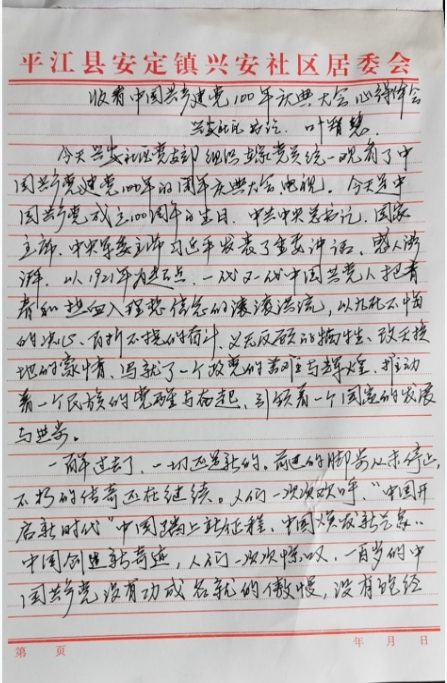 平江县安定镇兴安社区居委会
收看中国共产党建党100年庆典大会心得体会
兴安社区书记、叶精慧
今天兴安社区党支部组织在家党员统一观看了中
国共产党建党100年的周年庆典大会电视。今天是中
国共产党成立100周年的生日、中共中央总书记、国家
主席、中央军委主席习近平发表了重要讲话、感人至
深。以1921年为起点、一代又一代中国共产党人把青
春和热血入理想信念的滚滚洪流，以九死不悔
的决心、百折不挠的奋斗、义无反顾的牺牲、改天换
地的豪情、写就了一个政党的苦难与辉煌、推动
着一个民族的觉醒与奋起、引领着一个国家的发展
与进步。
一百年过去了、一切还是新的。前进的脚步从未停止，
不朽的传奇还在继续。人们一次次欢呼、“中国开
启新时代”中国踏上新征程、中国焕发新气象、
中国创造新奇迹，人们一次次惊叹、一百岁的中
国共产党没有功成名就的傲慢，没有饱经
第 页
年 月 日